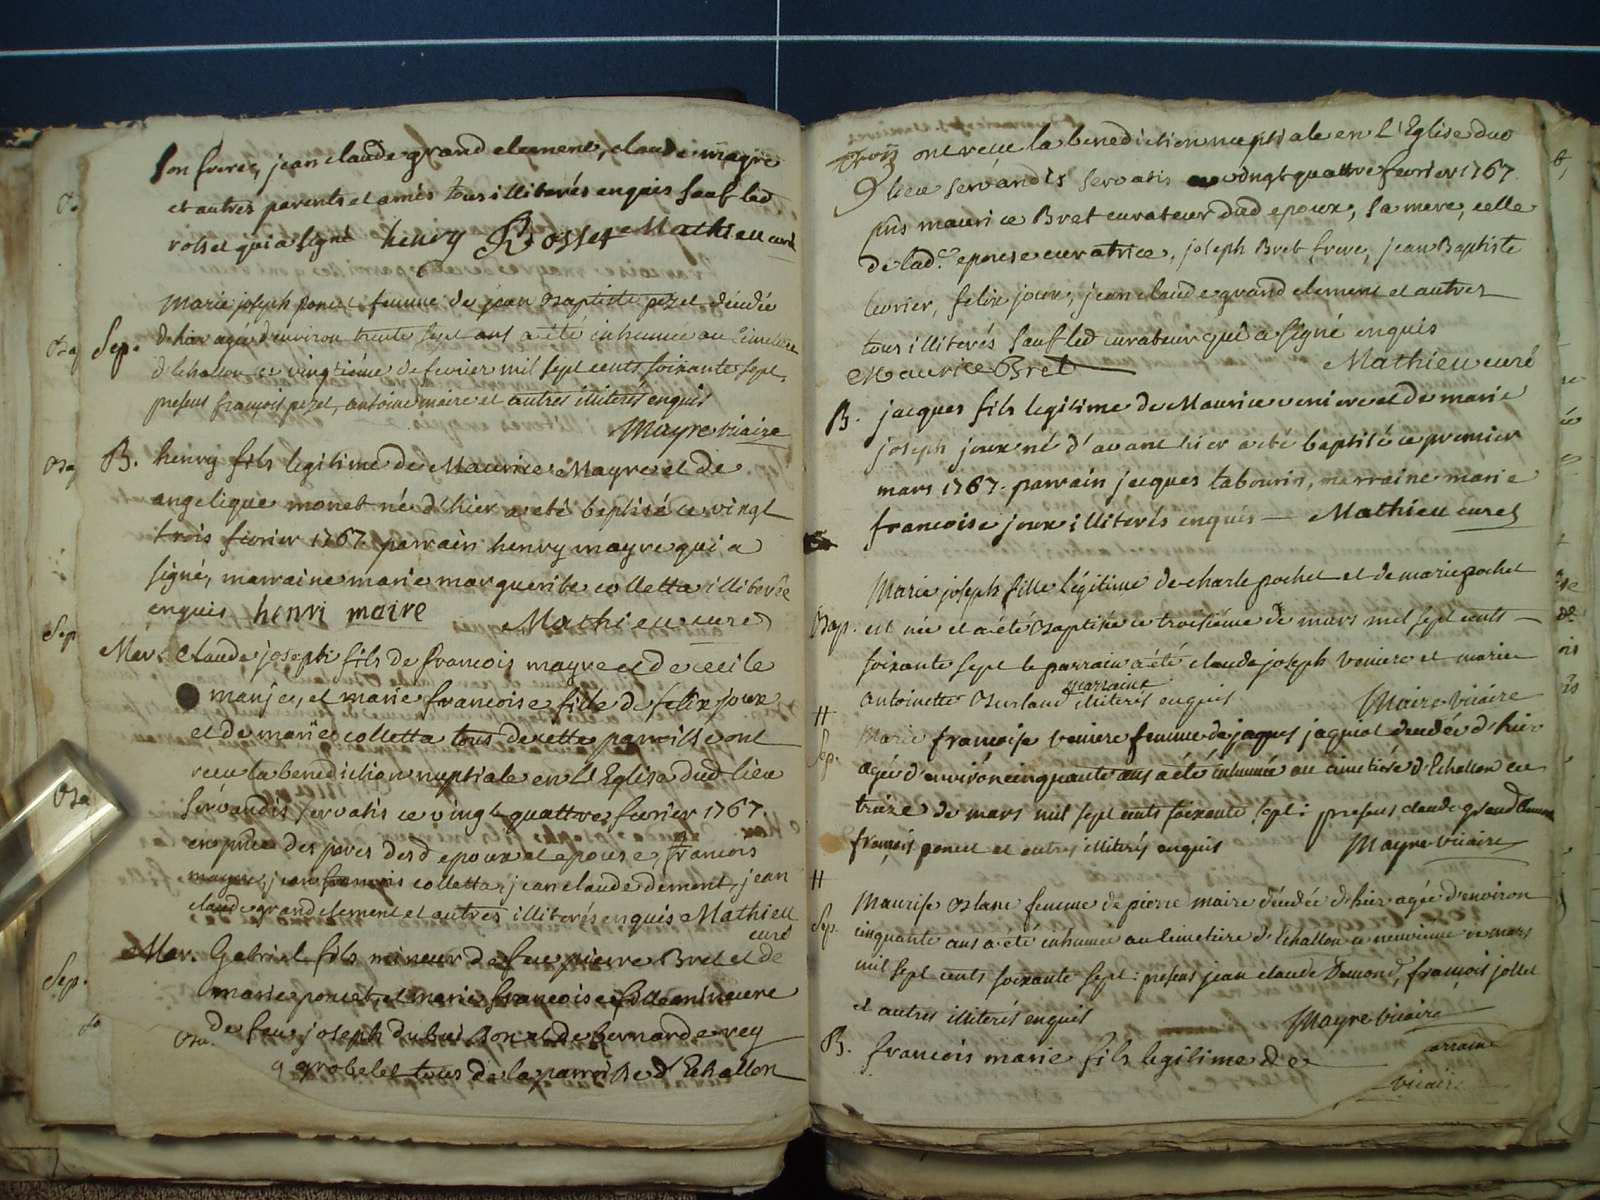 son frere, jean claude grand clement, claude mayre
et autres parents et amis tous illiterés enquis sauf led
rosset qui a signé henry Rosset Mathieu curé
Sep. Marie joseph poncet femme de jean Baptiste pezet décédée
d'hier agée d'environ trente sept ans a été inhumée au cimetière
d'Echallon ce vingtième de fevrier mil sept cents soixante sept,
presens françois pezet, antoine maire et autres illiterés enquis
Mayre vicaire
B. henry fils legitime de Maurice Mayre et de
angelique monet né d'hier a eté baptisé ce vingt
trois fevrier 1767. parrain henry mayre qui a
signé, marraine marie marguerite colletta illiterée
enquis henri maire Mathieu curé
Mar. Claude joseph fils de francois mayre et de cecile
manje, et marie francoise fille de felix joux
et de marie colletta tous de cette parroisse ont
receu la benediction nuptiale en L'Eglise dud lieu
servandis servatis ce vingt quattre fevrier 1767.
en pñce des peres desd epoux et epouse, francois
mayre, jean francois colletta, jean claude dément, jean
claude grand clement et autres illiterés enquis Mathieu
curé
Mar. Gabriel fils mineur de feu pierre Bret et de
marie poncet, et marie francoise fille mineure
de feu joseph dubuisson et de bernarde rey
grobelet tous de la parroisse d'Echallon
ont receu la benediction nuptiale en L'Eglise dud
lieu servandis servatis ce vingt quattre fevrier 1767.
pñs maurice Bret curateur dud epoux, sa mere, celle
de lad. epouse curatrice, joseph Bret frere, jean Baptiste
levrier, felix joux, jean claude grand clement et autres
tous illiterés sauf led curateur qui a signé enquis
Maurice Bret Mathieu curé
B. jacques fils legitime de Maurice veniere et de marie
joseph joux né d'avant hier a eté baptisé ce premier
mars 1767. parrain jacques tabourin, marraine marie
francoise joux illiterés enquis Mathieu curé
Marie joseph fille légitime de charle pochet et de marie pochet
Bap. est née et a été Baptisée ce troisième de mars mil sept cents
soixante sept le parrain a été claude joseph veniere et marie
marraine
antoinette Burlaud illiterés enquis Maire vicaire
H
Sep. Marie françoise veniere femme de jaques jaquot décédée d'hier
agée d'environ cinquante ans a été inhumée au cimetière d'Echallon ce
treize de mars mil sept cents soixante sept: presens claude grand clement
françois poncet et autres illiterés enquis Mayre vicaire
H
Sep. Maurise Blanc femme de pierre maire décédée d'hier agée d'environ
cinquante ans a été inhumée au cimetière d'Echallon ce neuvième de mars
mil sept cents soixante sept: presens jean claude Demond, françois jollet
et autres illiterés enquis Mayre vicaire
B. francois marie fils legitime de
arraine
vicaire